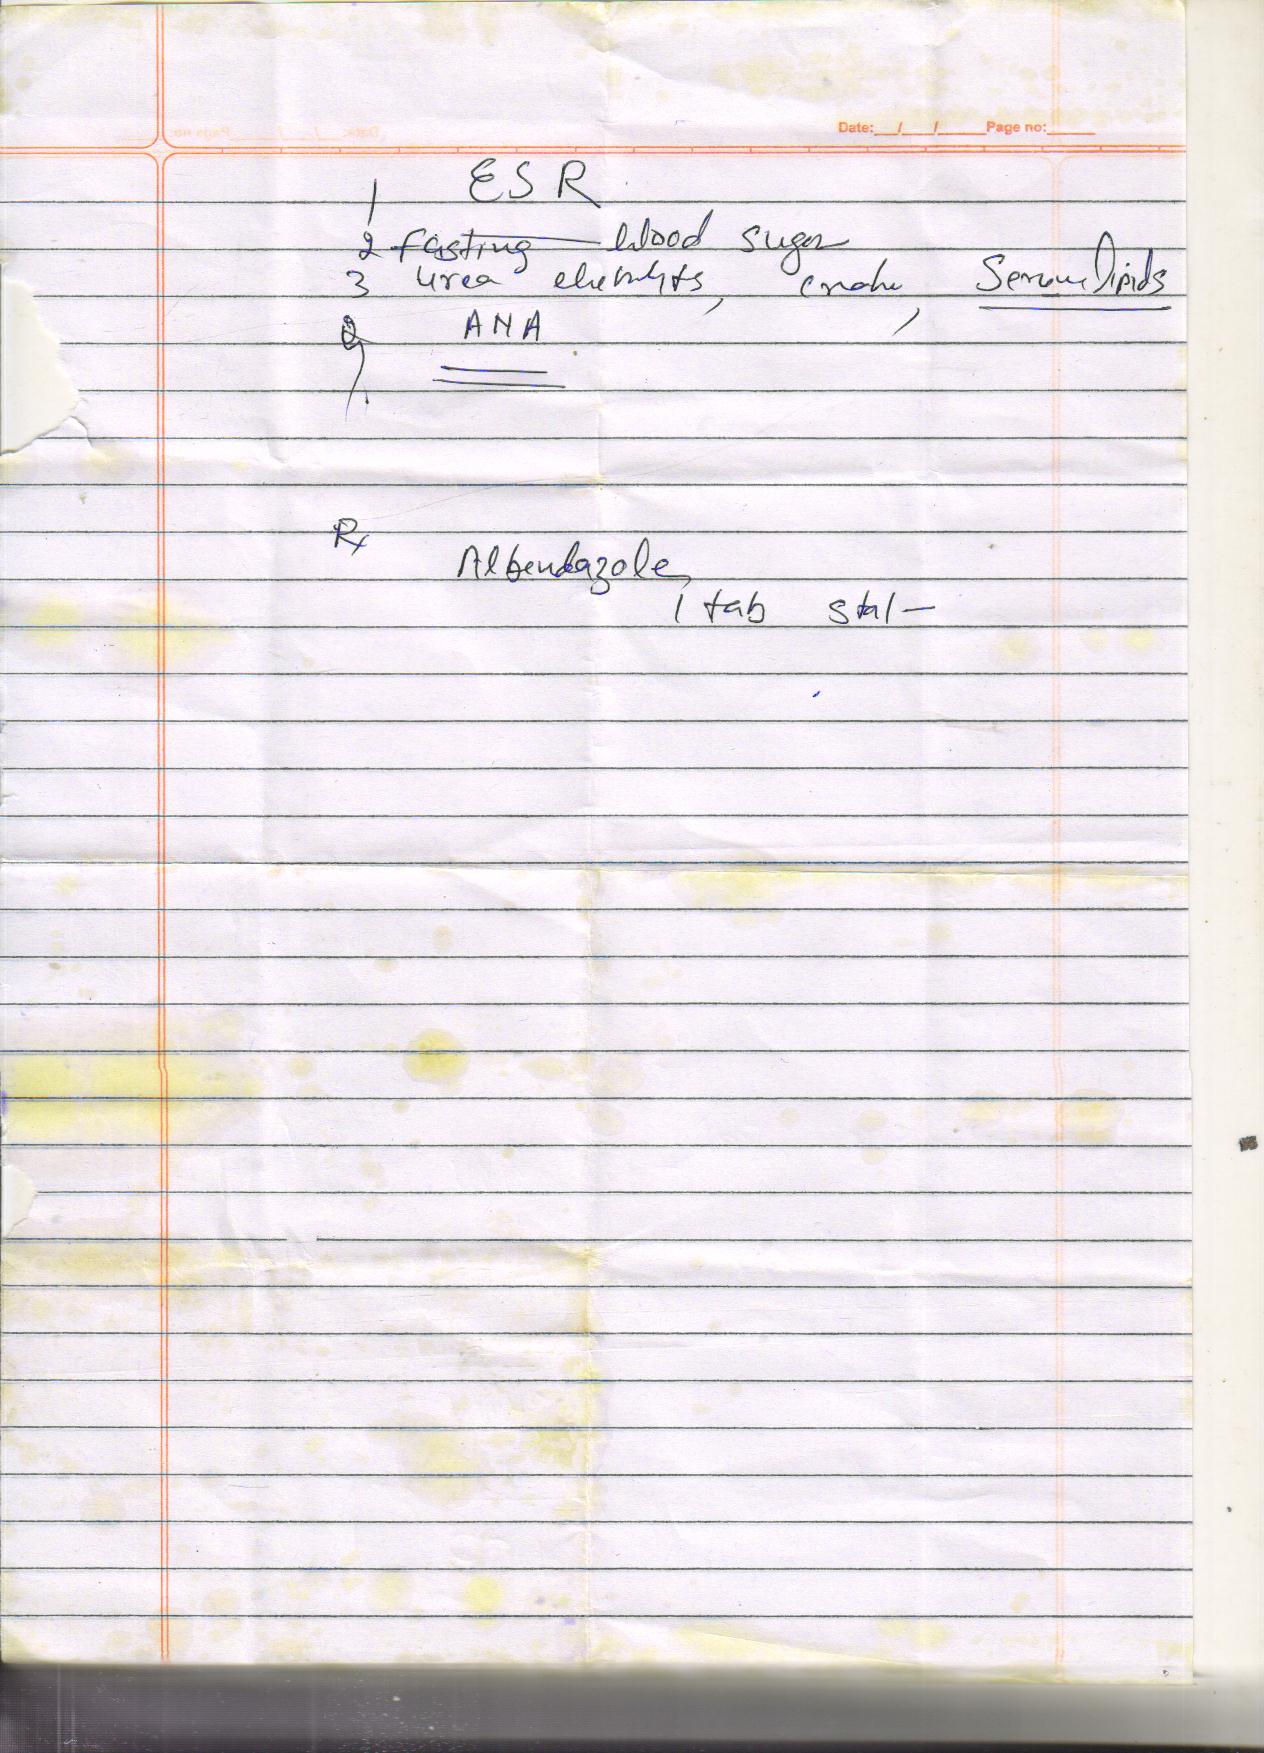 Date:___/___/_____Page no:_____
1 ESR
2 fasting blood sugar
3 urea , , Serum lipids
ANA
Rx
Albendazole
1 tab stat